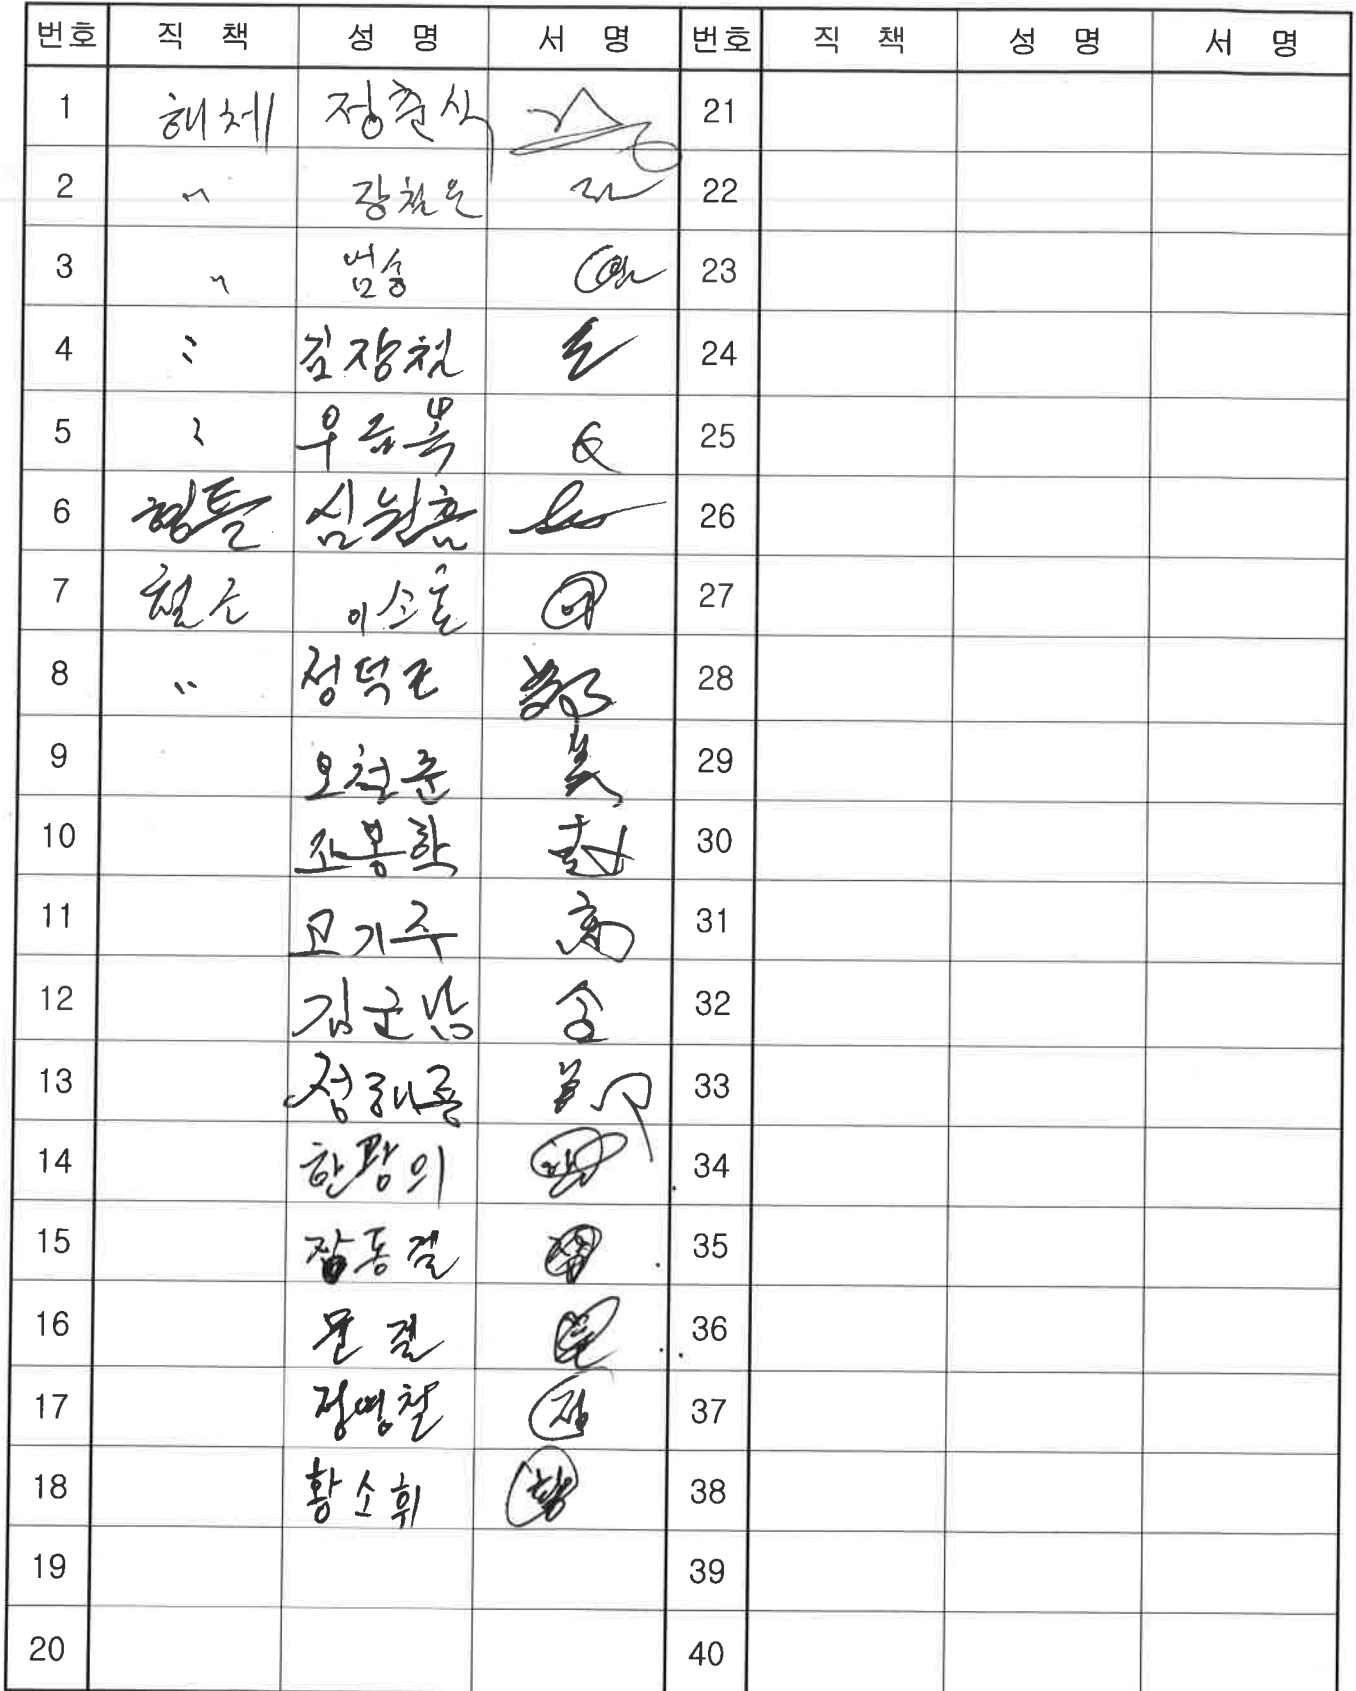 번호 직 책 성 명 서 명 번호 직 책 성 명 서 명
1 해체 정춘식 21
2 〃 장철운 22
3 〃 범승 23
4 〃 김장천 24
5 〃 우금복 25
6 형틀 심원흠 26
7 철근 이소호 27
8 〃 정덕근 28
9 오철준 29
10 조봉학 30
11 고기주 高 31
12 김군남 金 32
13 정해룡 33
14 한광의 34
15 장동걸 35
16 문걸 36
17 정영철 정 37
18 황소휘 황 38
19 39
20 40